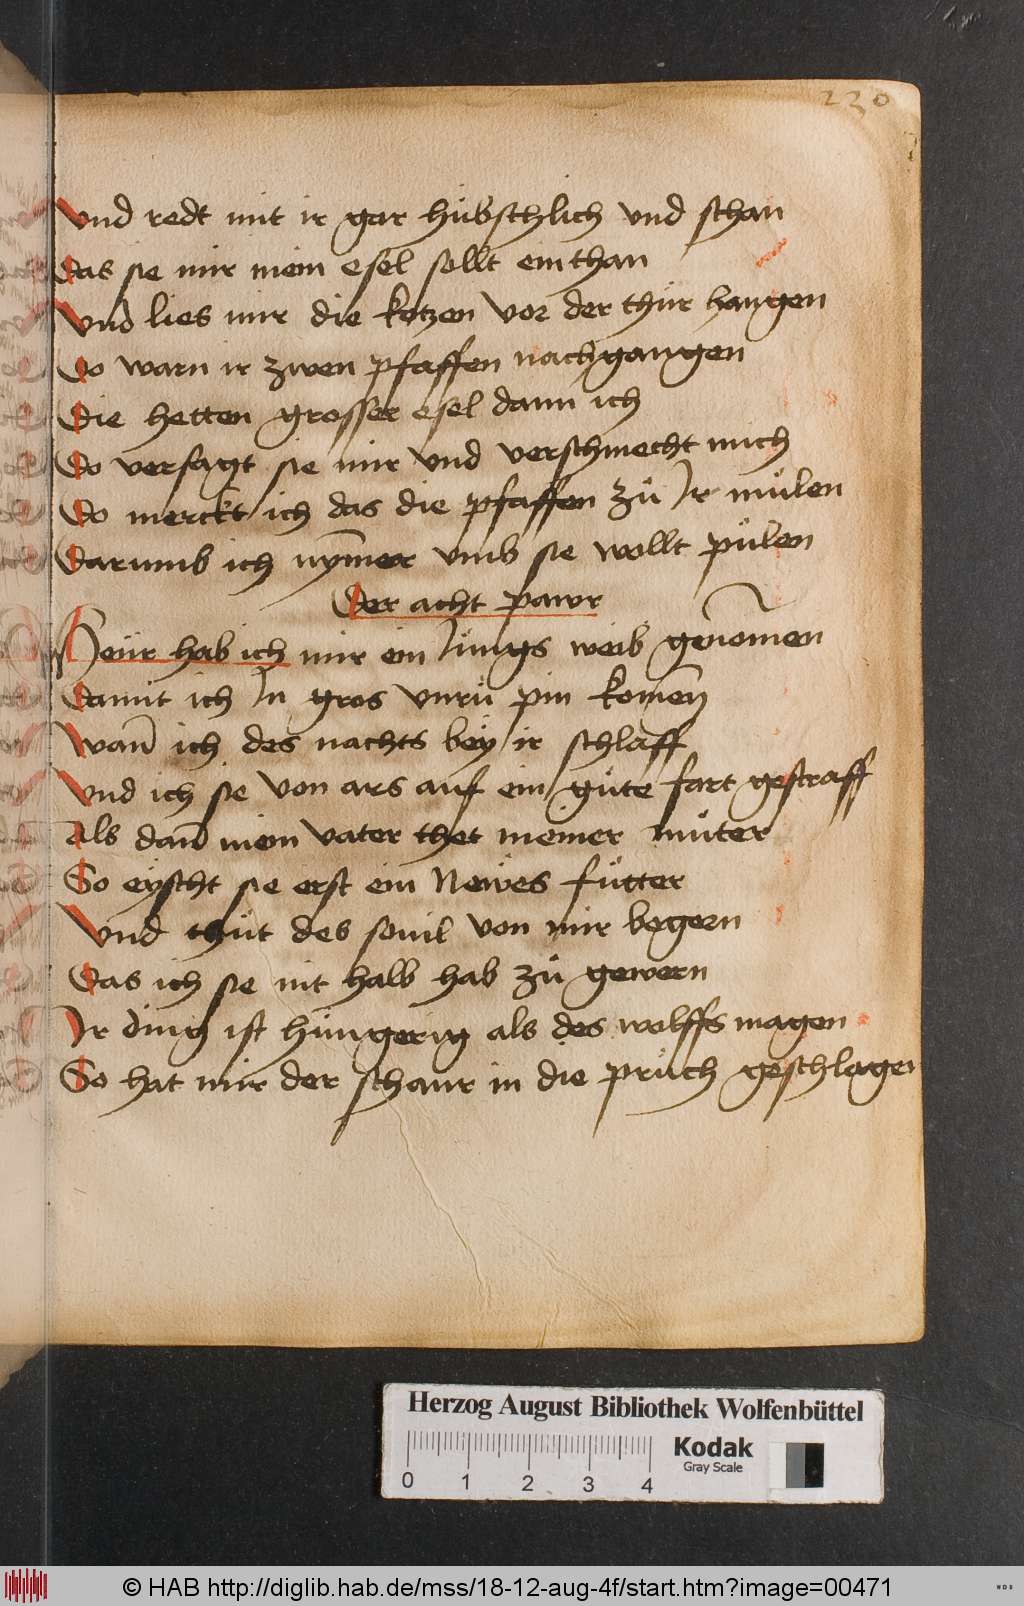 230
Vnd redt mit ir gar hübschlich vnd schan
Das sie mir mein esel sollt einthan
Vnd lies mir die kotzen vor der thür hangen
Do warn ir zwen pfaffen nachgangen
Die hetten grosser esel dann ich
Do versagt sie mir vnd verschmecht mich
Do merckt ich das die pfaffen zů Ir můlen
Darumb ich nym̄er vmb sie wollt půlen
Der acht pawr
Heür hab ich mir ein Jungs weib genom̄en
Damit ich In gros vnrů pin komen̄
Wan̄ ich des nachts bey ir schlaff
Vnd ich sie von ars auf ein gůte fart gestraff
Als dan̄ mein vater thet meiner můter
So eyscht sie erst ein Newes fůtter
Vnd thůt des souil von mir begern
Das ich sie nit halb hab zů gewern
Ir ding ist hungerig als des wolffs magen
So hat mir der schaur in die průch geschlagen
Herzog August Bibliothek Wolfenbüttel
Kodak
Gray Scale
0 1 2 3 4
© HAB http://diglib.hab.de/mss/18-12-aug-4f/start.htm?image=00471